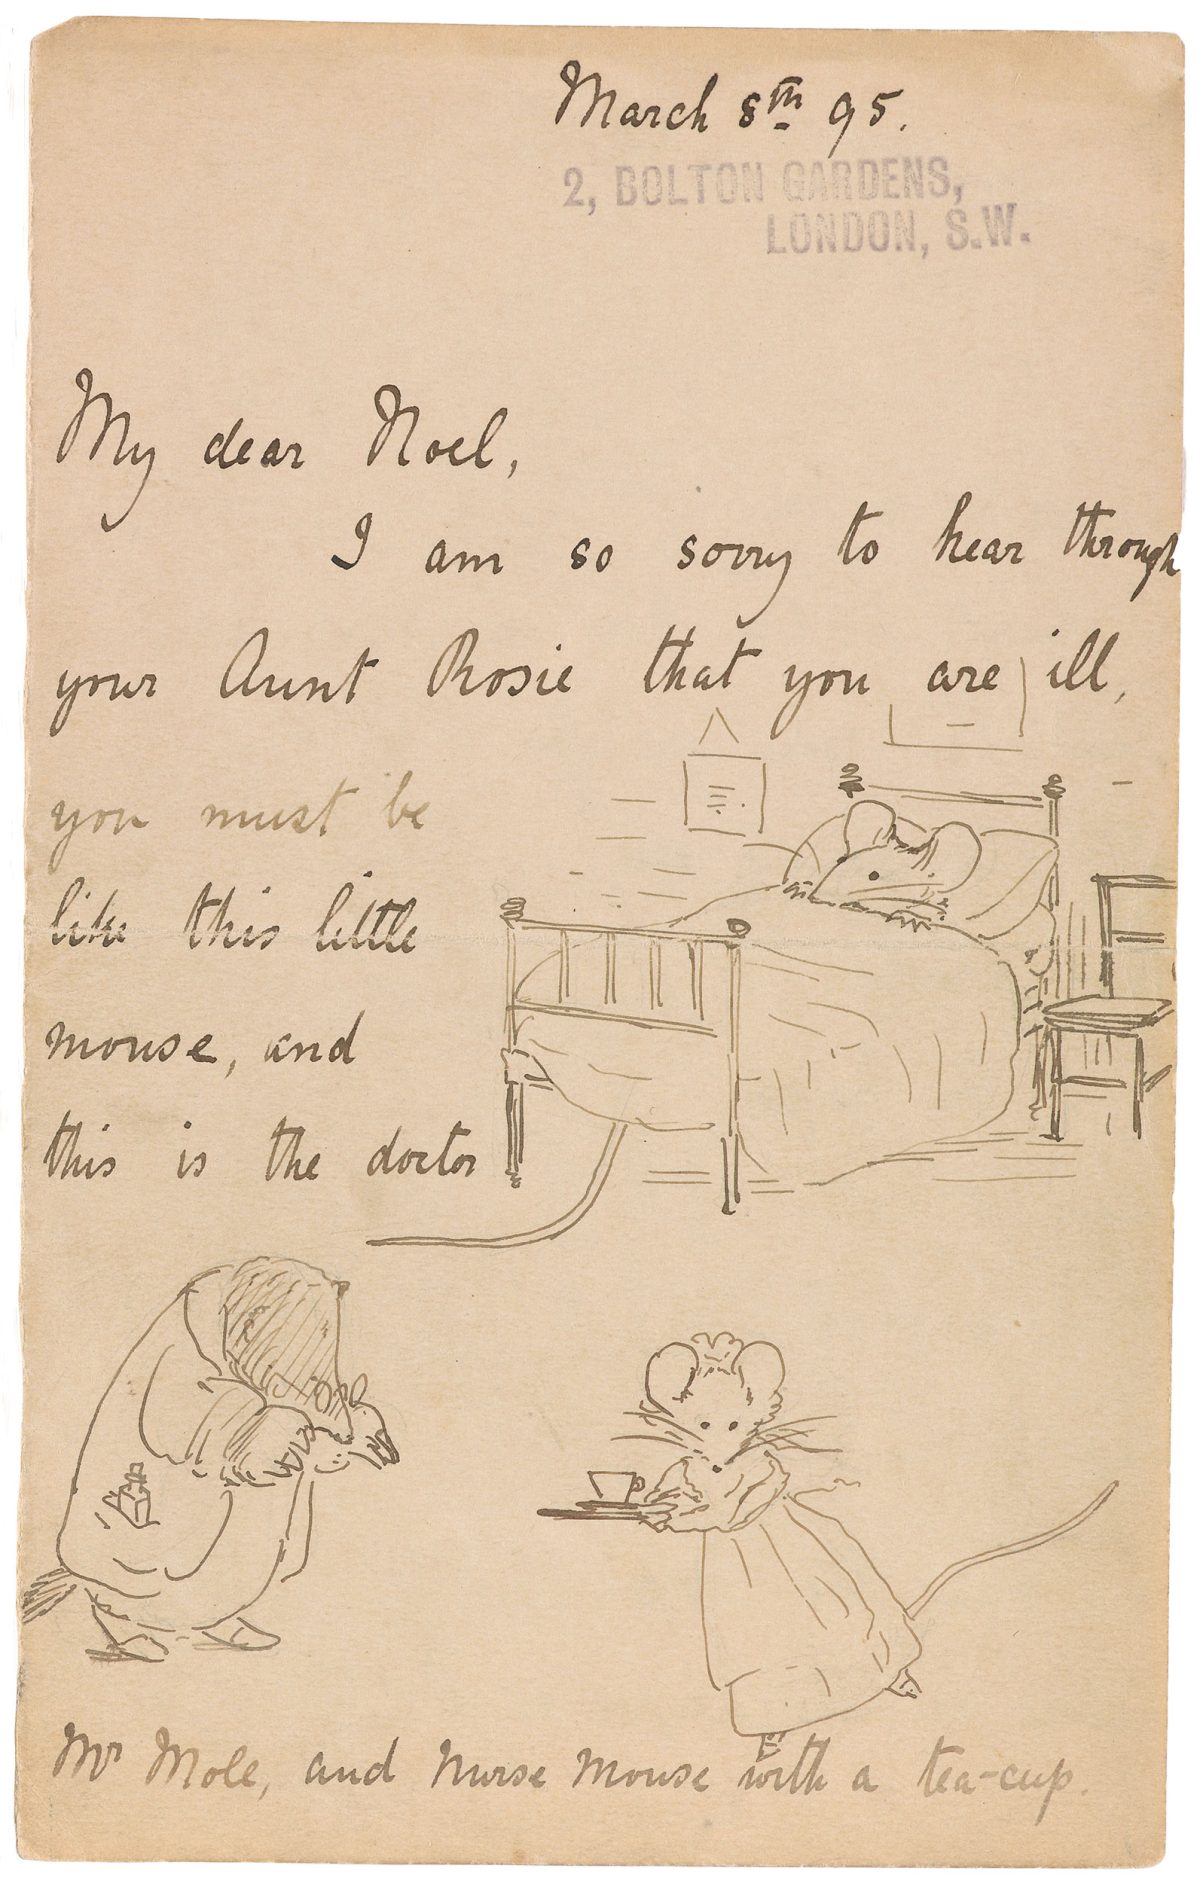 March 8th 95.
2, BOLTON GARDENS,
LONDON, S.W.
My dear Noel,
I am so sorry to hear through
your Aunt Rosie that you are ill,
you must be
like this little
mouse, and
this is the doctor
Mr Mole, and Nurse Mouse with a tea-cup.